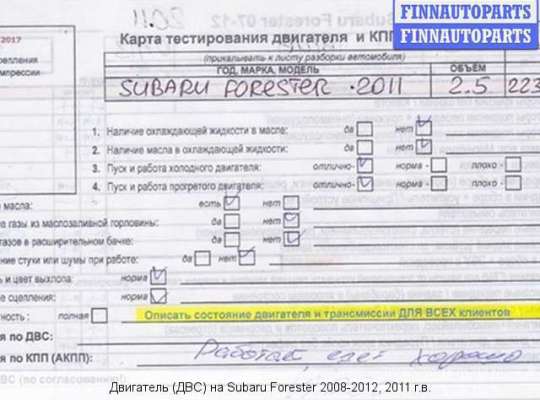 Subaru Forester 07-12
2011
FINNAUTOPARTS
FINNAUTOPARTS
2017
Карта тестирования двигателя и КПП
(прикалывать к листу разборки автомобиля)
репления
мпрессии
ГОД, МАРКА, МОДЕЛЬ ОБЪЕМ
SUBARU FORESTER · 2011 2.5 223
1. Наличие охлаждающей жидкости в масле: да нет
2. Наличие масла в охлаждающей жидкости: да нет
3. Пуск и работа холодного двигателя: отлично- норма - плохо -
4. Пуск и работа прогретого двигателя: отлично- норма - плохо -
масла: есть нет
е газы из маслозаливной горловины: да нет
газов в расширительном бачке: да нет
ние стуки или шумы при работе: да нет
ь и цвет выхлопа: норма
е сцепления: норма
ность : полная Описать состояние двигателя и трансмиссии ДЛЯ ВСЕХ клиентов
я по ДВС:
я по КПП (АКПП): Работает, едет хорошо
ВС (по согласованию!)
Двигатель (ДВС) на Subaru Forester 2008-2012, 2011 г.в.